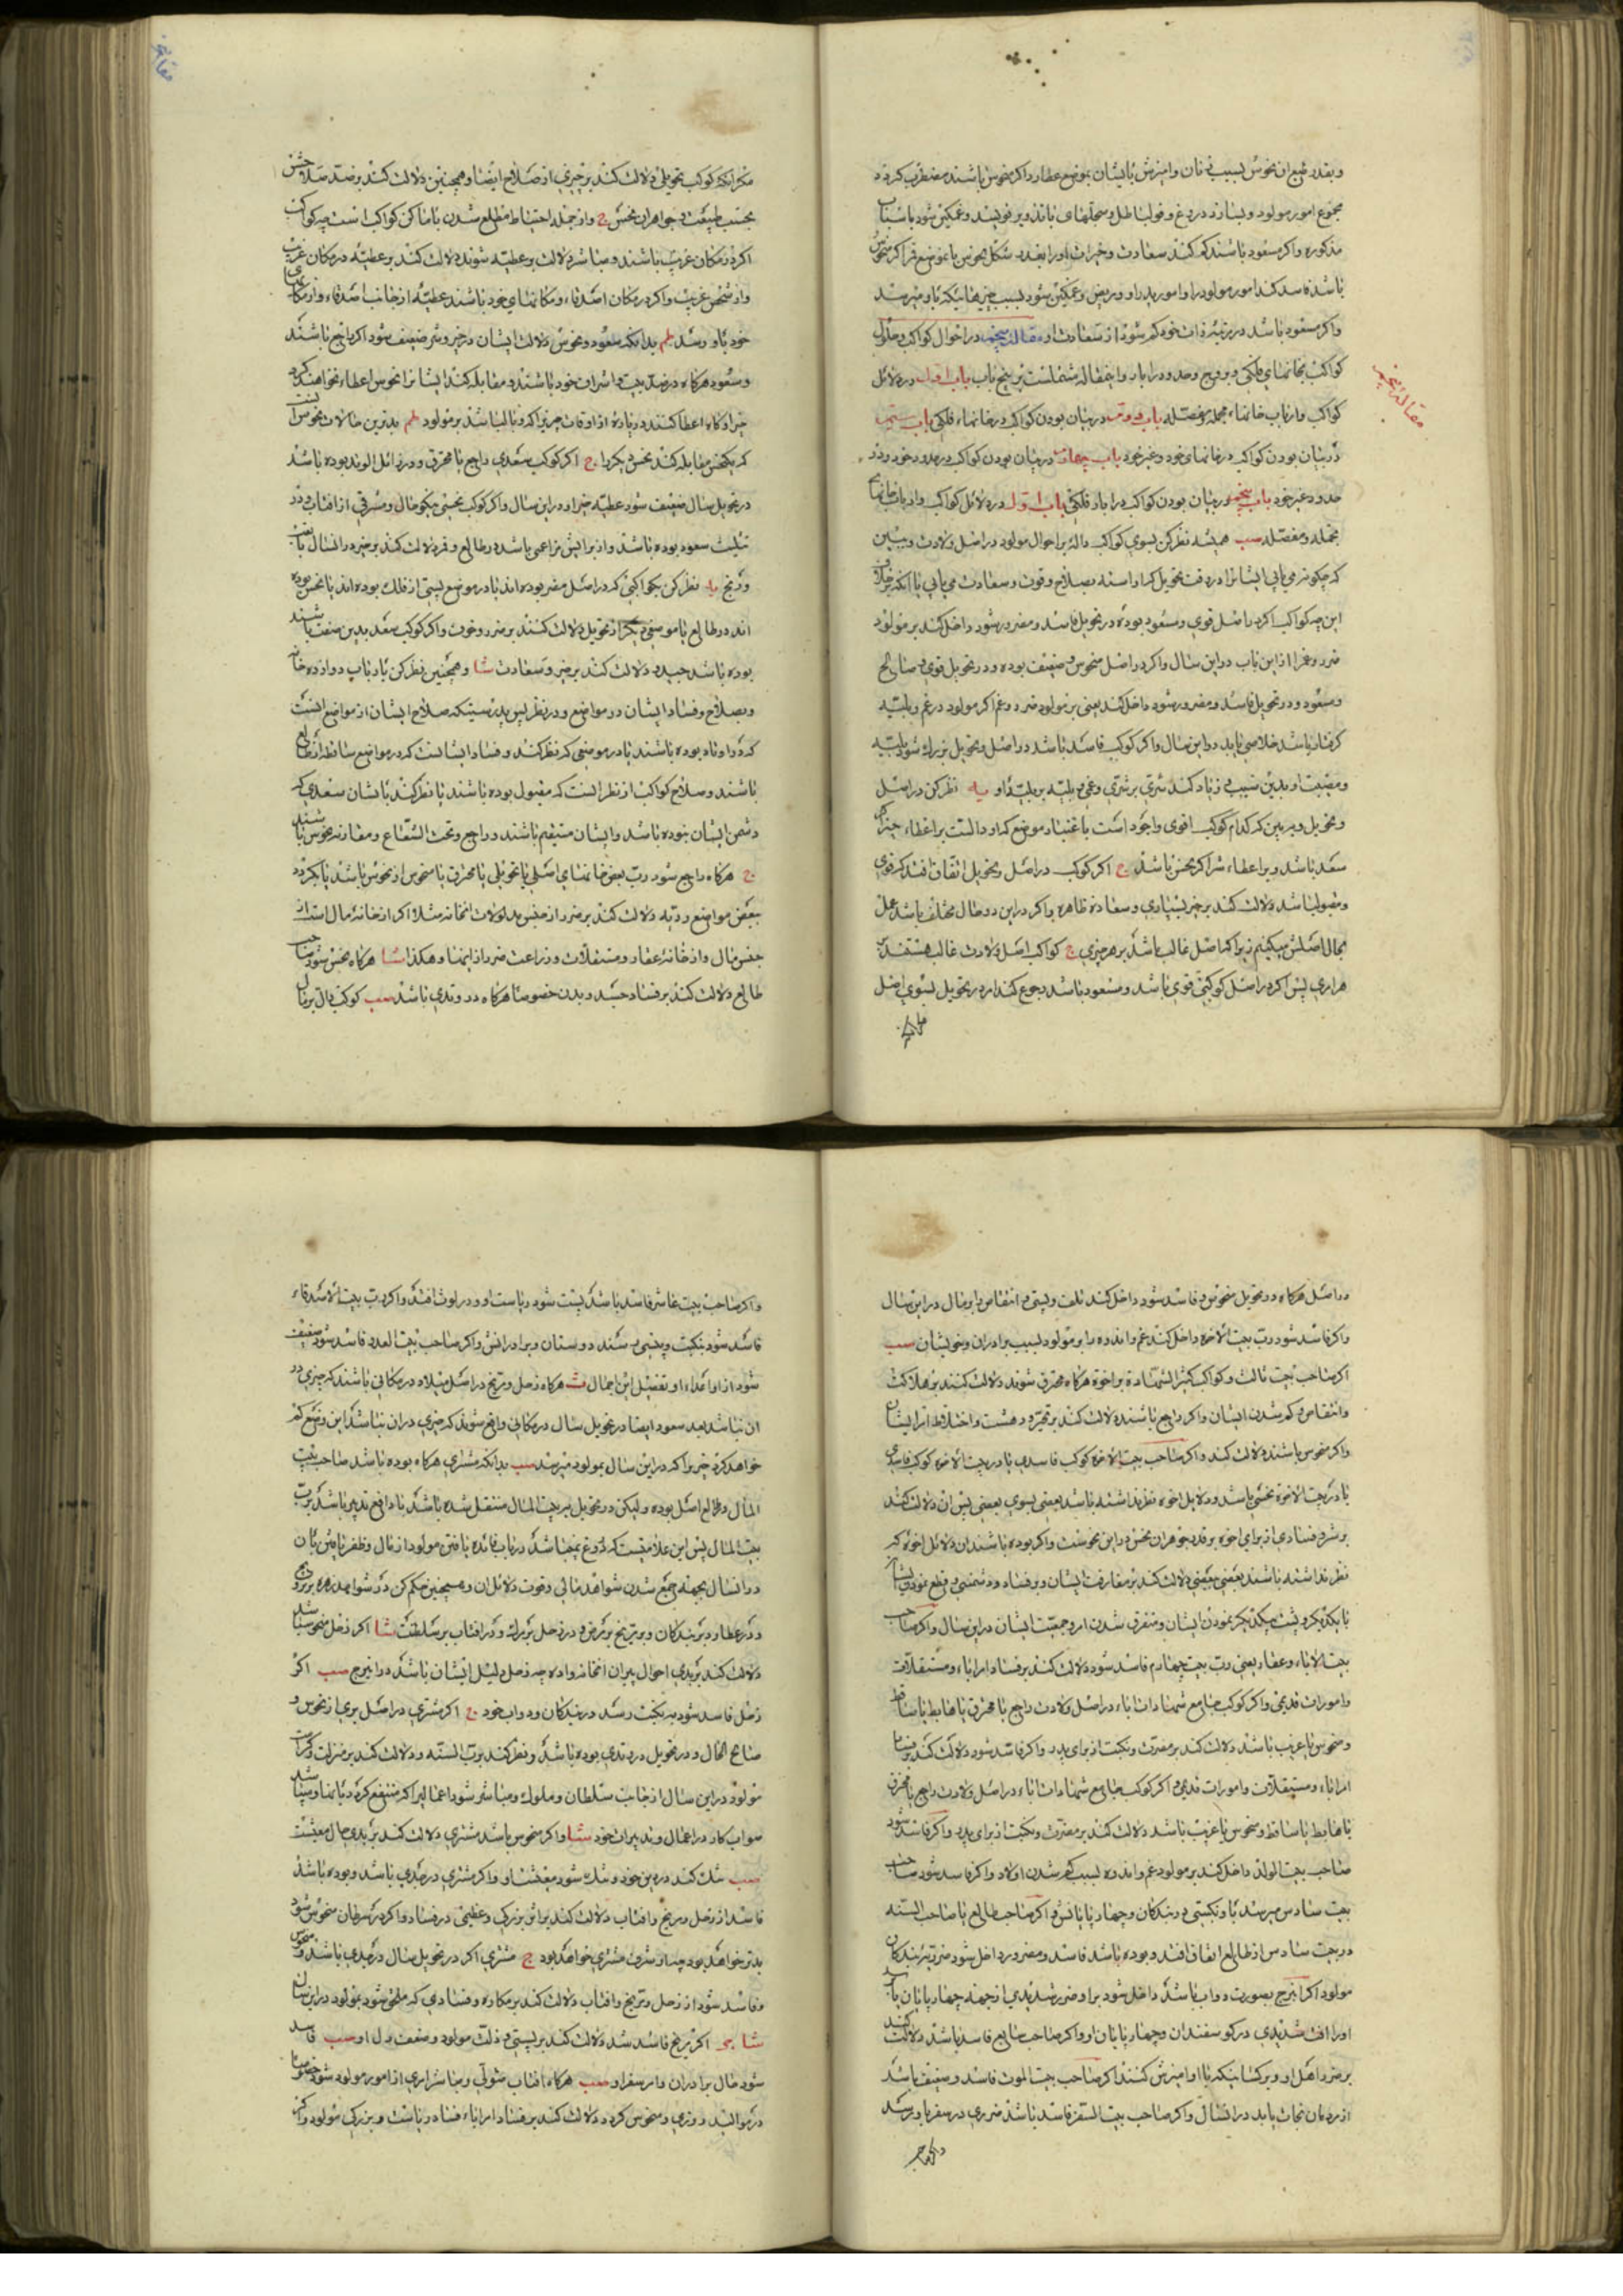 و بقدر طبع ان نحوس بسبب زنان و امیزش با ایشان بموضع عطارد اکر منحوس باشند مضطرب کردد
مجموع امور مولود و بسازد دروغ و قول باطل و سجلهای باند و بر نویسد و غمکین شود باسباب
مذکوره و اکر مسعود باشند کم کنند سعادت و خیرات او را بقدر شکل نحوس یا بموضع قمر اکر منحوس
باشد فاسد کند امور مولود را و امور پدر او و مریض و غمکین شود بسبب چیزهائیکه باو میرسد
و اکر مسعود باشد در مرتبه ذات خود کم شود از سعادت او مقاله پنجم در احوال کواکب و حلول
کواکب بخانهای فلکی و بروج و حدود و ادبار و اینمقاله مشتملست بر پنج باب باب اول در دلائل
کواکب و ارباب خانها مجمله و مفصله باب دوم در بیان بودن کواکب در خانهاء فلکی باب سیم
در بیان بودن کواکب در خانهای خود و غیر خود باب چهارم در بیان بودن کواکب در حدود خود و در
حدود غیر خود باب پنجم در بیان بودن کواکب در ادبار فلکی باب اول در دلائل کواکب و ارباب خانها
مجمله و مفصله همیشه نظر کن بسوی کواکب داله بر احوال مولود در اصل ولادت و ببین
که چکونه می یابی ایشانرا در وقت تحویل اراسته بصلاح و قوت و سعادت می یابی یا انکه بخلاف
این چه کواکب اکر در اصل قوی و مسعود بوده در تحویل فاسد و مضرور شود داخل کند بر مولود
ضرر و غم را از این باب در این سال و اکر در اصل منحوس و ضعیف بوده و در تحویل قوی و صالح
و مسعود و در تحویل فاسد و مضرور شود داخل کند یعنی بر مولود ضرر و غم اکر مولود در غم و بلیه
کرفتار باشد خلاصی یابد در این سال و اکر کوکب فاسد باشد در اصل و تحویل بزرک شود بلیه
و مصیبت او بدین سبب و زیاد کند شری بر شری و غمی و بلیه بر بلیه او نظر کن در اصل
و تحویل و ببین که کدام کوکب اقوی و اجود است باعتبار موضع که او دالست بر اعطاء خیر اکر
سعد باشد و بر اعطاء شر اکر نحس باشد ج اکر کوکب در اصل و تحویل اتفاق افتد که قوی
و مقبول باشد دلالت کند بر خیر بسیاری و سعادة ظاهره و اکر در این دو حال مختلف باشد عمل
بحال اصلش میکنیم زیرا که اصل غالب باشد بر هر چیزی ج کواکب اصل ولادت غالب هستند بر
هر اری پس اکر در اصل کوکبی قوی باشد و مسعود باشد رجوع کند امر در تحویل بسوی اصل
مقاله پنجم
مکر انکه کوکب تحویلی دلالت کند بر چیزی از صلاح ایضا و همچنین دلالت کند بر ضد صلاحش
بحسب طبیعت و جواهر ان نحس ج و از جمله احتیاط مطلع شدن باماکن کواکب است چه کواکب
اکر در مکان غریب باشند و مباشر دلالت بر عطیه شوند دلالت کند بر عطیه در مکان غریب
و از شخص غریب و اکر در مکان اصدقاء و مکانهای خود باشند عطیه از جانب اصدقاء و از مکانهای
خود باو رسد بدانکه سعود و نحوس دلالت ایشان در خیر و شر ضعیف شود اکر راجع باشند
و سعود هرکاه در ضد بیت و اشراف خود باشند و مقابله کنند ایشانرا نحوس اعطاء نخواهند کرد
خیر او کاه اعطا کنند در زیاده از اوقات چیزیرا که وبال باشد بر مولود بدترین حالات نحوس انست
که یکنحس مقابله کند نحس دیکر را ج اکر کوکب سعدی راجع یا محترق و در زائل الوتد بوده باشد
در تحویل سال ضعیف شود عطیه خیر او در این سال و اکر کوکب نحسی نیکو حال و مشرقی از افتاب و در
تثلیث سعود بوده باشد و از برایش مزاعمی باشد در طالع و قمر دلالت کند بر خیر در انسال یا تعب
و رنج نظر کن بکواکبی که در اصل مضر بوده اند یا در موضع پستی از فلک بوده اند یا نحس بوده
اند در طالع یا موضعی دیکر از تحویل دلالت کنند بر ضرر و خوف و اکر کوکب سعد بدین صفت باشند
بوده باشد جید دلالت کند بر خیر و سعادت و همچنین نظر کن بارباب دوازده خانه
و بصلاح و فساد ایشان در مواضع و در نظر پس بدرستیکه صلاح ایشان از مواضع انست
که در اوتاد بوده باشند یا در موضعی که نظر کنند و فساد ایشانست که در مواضع ساقط از طالع
باشند و صلاح کواکب از نظر انست که مقبول بوده باشند یا نظر کند باایشان سعدی که
دشمن ایشان نبوده باشد و ایشان مستقیم باشند و راجع و تحت الشعاع و مقارنه نحوس نباشند
ج هرکاه راجع شود رب بعض خانهای اصلی یا تحویلی یا محترق یا منحوس از نحوس باشد یا بکردد
ببعض مواضع ردیه دلالت کند بر ضرر از جنس مدلولات انخانه مثلا اکر از خانه مال است از
جنس مال و از خانه عقار و مستغلات و زراعت ضرر از اینها و هکذا هرکاه نحس شود صاحب
طالع دلالت کند بر فساد جسد و بدن خصوصا هرکاه در وتدی باشد کوکب دال بر مال
در اصل هرکاه در تحویل منحوس و فاسد شود داخل کند تلف و پستی و انتقاص در مال در این سال
و اکر فاسد شود رب بیت الاخوة داخل کند غم و اندوه را بر مولود بسبب برادران و خویشان
اکر صاحب بیت ثالث و کواکب کثیر الشهادة بر اخوة هرکاه محترق شوند دلالت کنند بر هلاکت
و انتقاص و کم شدن ایشان و اکر راجع باشند دلالت کند بر تحیر و دهشت و اختلاط امر ایشان
و اکر منحوس باشند دلالت کند و اکر صاحب بیت الاخوة کوکب فاسدی یا در بیت الاخوة کوکب فاسدی
یا در بیت الاخوة نحسی باشد و دلایل اخوه نظر نداشته باشد بعضی بسوی بعضی پس ان دلالت کند
بر شر و فسادی از برای اخوه بر قدر جوهر ان نحس و در این نحوست و اکر بوده باشند ان دلائل اخوه که
نظر نداشته باشند بعضی ببعضی دلالت کند بر مفارقت ایشان و بر فساد و دشمنی و قطع نمودن ایشان
با یکدیکر و پشت بیکدیکر نمودن ایشان و متفرق شدن امر و جمعیت ایشان در این سال و اکر صاحب
بیت الاباء و عقار یعنی رب بیت چهارم فاسد شود دلالت کند بر فساد امر اباء و مستغلات
و امورات قدیمی و اکر کوکب جامع شهادات اباء در اصل ولادت راجع یا محترق یا هابط یا ساقط
و منحوس یا غریب باشد دلالت کند بر مضرت و نکبت از برای پدر و اکر فاسد شود دلالت کند بر فساد
امر اباء و مستغلات و امورات قدیمی و اکر کوکب جامع شهادات اباء در اصل ولادت راجع یا محترق
یا هابط یا ساقط و منحوس یا غریب باشد دلالت کند بر مضرت و نکبت از برای پدر و اکر فاسد شود
صاحب بیت الولد داخل کند بر مولود غم و اندوه بسبب کم شدن اولاد و اکر فاسد شود صاحب
بیت سادس میرسد باو نکبتی در بندکان و چهار پایانش و اکر صاحب طالع یا صاحب السنه
در بیت سادس از طالع اتفاق افتد و بوده باشد فاسد و مضرور داخل شود ضرر بر بندکان
مولود اکر انبرج بصورت دواب باشد داخل شود بر او ضرر شدیدی از جهة چهار پایان باشد
او را افت شدیدی در کوسفندان و چهار پایان او و اکر صاحب سابع فاسد باشد دلالت کند
بر ضرر اهل او و بر کسانیکه باا و امیزش کنند اکر صاحب بیت الموت فاسد و ضعیف باشد
از زندان نجات یابد در انسال و اکر صاحب بیت السفر فاسد باشد ضرری در سفر باو رسد
و اکر صاحب
و اکر صاحب بیت عاشر فاسد باشد پست شود ریاست او و در لوث افتد و اکر رب بیت الاصدقاء
فاسد شود بنکبت و پستی رسند دوستان و برادرانش و اکر صاحب بیت العدو فاسد شود ضعیف
شود از او اعداء او تفصیل این اجمال هرکاه زحل و مریخ در اصل میلاد در مکانی باشند که چیزی در
ان نباشد بعد سعود ایضا در تحویل سال در مکانی واقع شوند که چیزی در ان نباشد این وضع کم
خواهد کرد خیر را که در این سال بمولود میرسد بدانکه مشتری هرکاه بوده باشد صاحب بیت
المال و طالع اصل بوده و لیکن در تحویل ببیت المال منتقل شده باشد یا دافع تدبیر باشد برب
بیت المال پس این علامتیست که دروغ نمیباشد در باب فائده یافتن مولود از مال و ظفر یافتن بان
در انسال بجهة جمع شدن شواهد مالی و قوت دلائل ان و همچنین حکم کن در شواهد زهره بر تزویج
و در عطارد بر بندکان و بر مریخ بر مرض و در زحل بر مرک و در افتاب بر سلطنت اکر زحل منحوس باشد
دلالت کند بر بدی احوال پیران انخانواده چه زحل دلیل ایشان باشد در انبرج اکر
زحل فاسد شود به نکبت رسد در بندکان و دواب خود ج اکر مشتری در اصل بری از نحوس و
صالح الحال و در تحویل در وتدی بوده باشد و نظر کند برب السنه و دلالت کند بر منزلت و کرامت
مولود در این سال از جانب سلطان و ملوک و مباشر شود اعمالیرا که منتفع کردد بانها و میباشد
صواب کار در اعمال و تدبیرات خود و اکر منحوس باشد مشتری دلالت کند بر بدی حال معیشت
شک کند در دین خود و تنک شود معیشت او و اکر مشتری در جدی باشد و بوده باشد
فاسد از زحل و مریخ و افتاب دلالت کند بر اثر بزرکی و عظیمی در فساد و اکر در سرطان منحوس شود
بدتر خواهد بود چه او شرف مشتری خواهد بود ج مشتری اکر در تحویل سال در جدی باشد و منحوس
و فاسد شود از زحل و مریخ و افتاب دلالت کند بر مکاره و فسادی که ملحق شود بمولود در این سال
اکر مریخ فاسد شد دلالت کند بر پستی و ذلت مولود و ضعف دل او فاسد
شود حال برادران و امر سفر او هرکاه افتاب متولی و مباشر امری از امور مولود شود خصوصا
در موالید روزی و منحوس کردد دلالت کند بر فساد امر اباء و فساد ریاست و بزرکی مولود و اکر